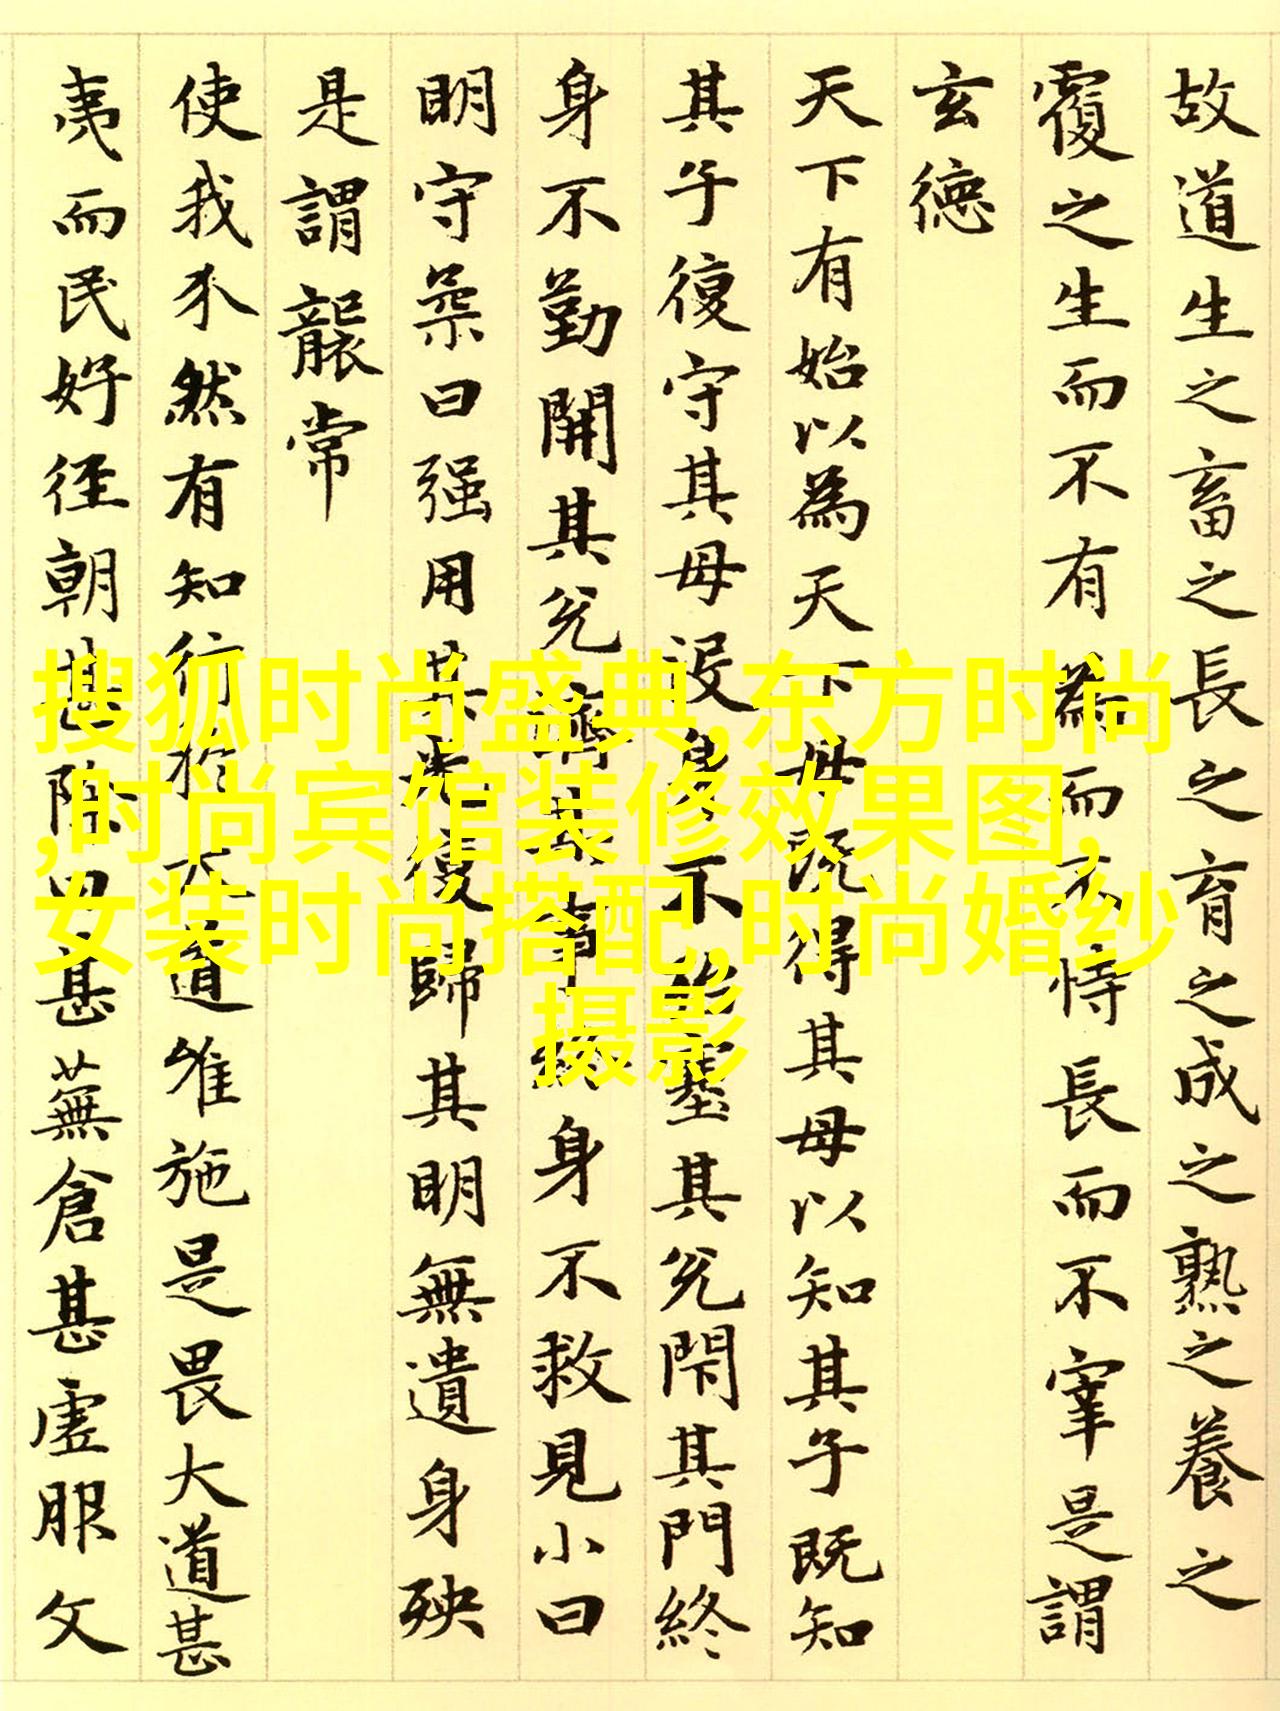 故道生之畜之長之育之成之熟之養之
覆之生而不有為而不恃長而不宰是謂
玄德
天下有始以為天下母既得其母以知其子既知
其子復守其母没身不殆塞其兌閉其門終
身不勤開其兌濟其事終身不救見小曰
明守柔曰强用其光復歸其明無遺身殃
是謂襲常
使我介然有知行於大道唯施是畏大道甚
夷而民好径朝甚除田甚蕪倉甚虚服文
搜狐时尚盛典,东方时尚
,时尚宾馆装修效果图,
女装时尚搭配,时尚婚纱
摄影